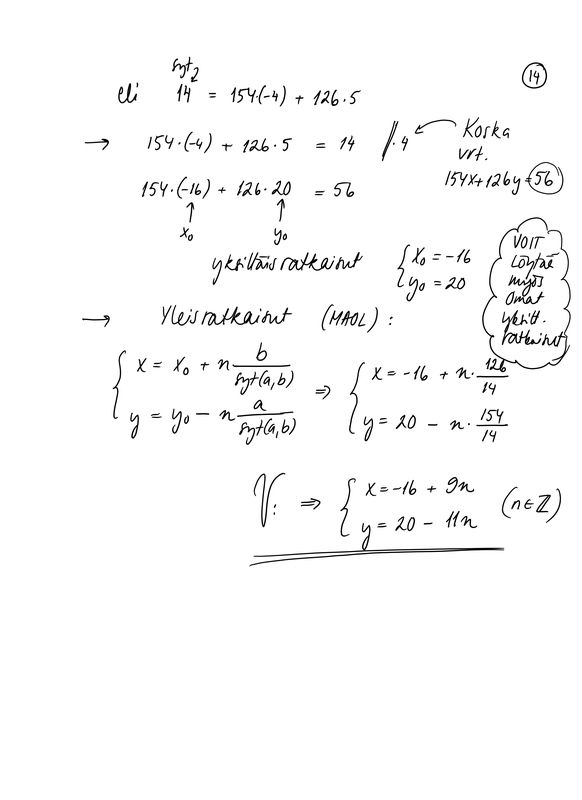 14
syt
eli 14 = 154·(-4) + 126·5
→ 154·(-4) + 126·5 = 14 ‖·4
Koska
vrt.
154x+126y=56
154·(-16) + 126·20 = 56
x₀ y₀
yksittäisratkaisut { x₀ = -16
y₀ = 20
VOIT
Löytää
myös
Omat
yksitt.
ratkaisut
→ Yleisratkaisut (MAOL) :
{ x = x₀ + n b/syt(a,b) ⇒ { x = -16 + n· 126/14
y = y₀ - n a/syt(a,b) y = 20 - n· 154/14
V: ⇒ { x = -16 + 9n
y = 20 - 11n (n∈ℤ)